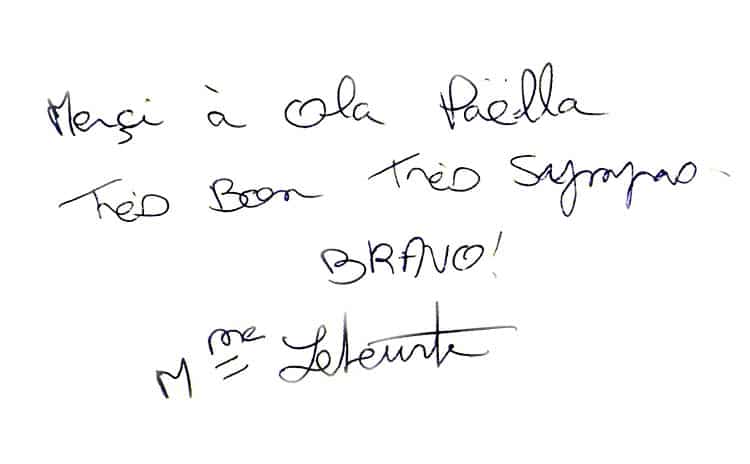 Merçi à Ola Paëlla
Très Bon Très Sympas.
BRAVO!
Mme